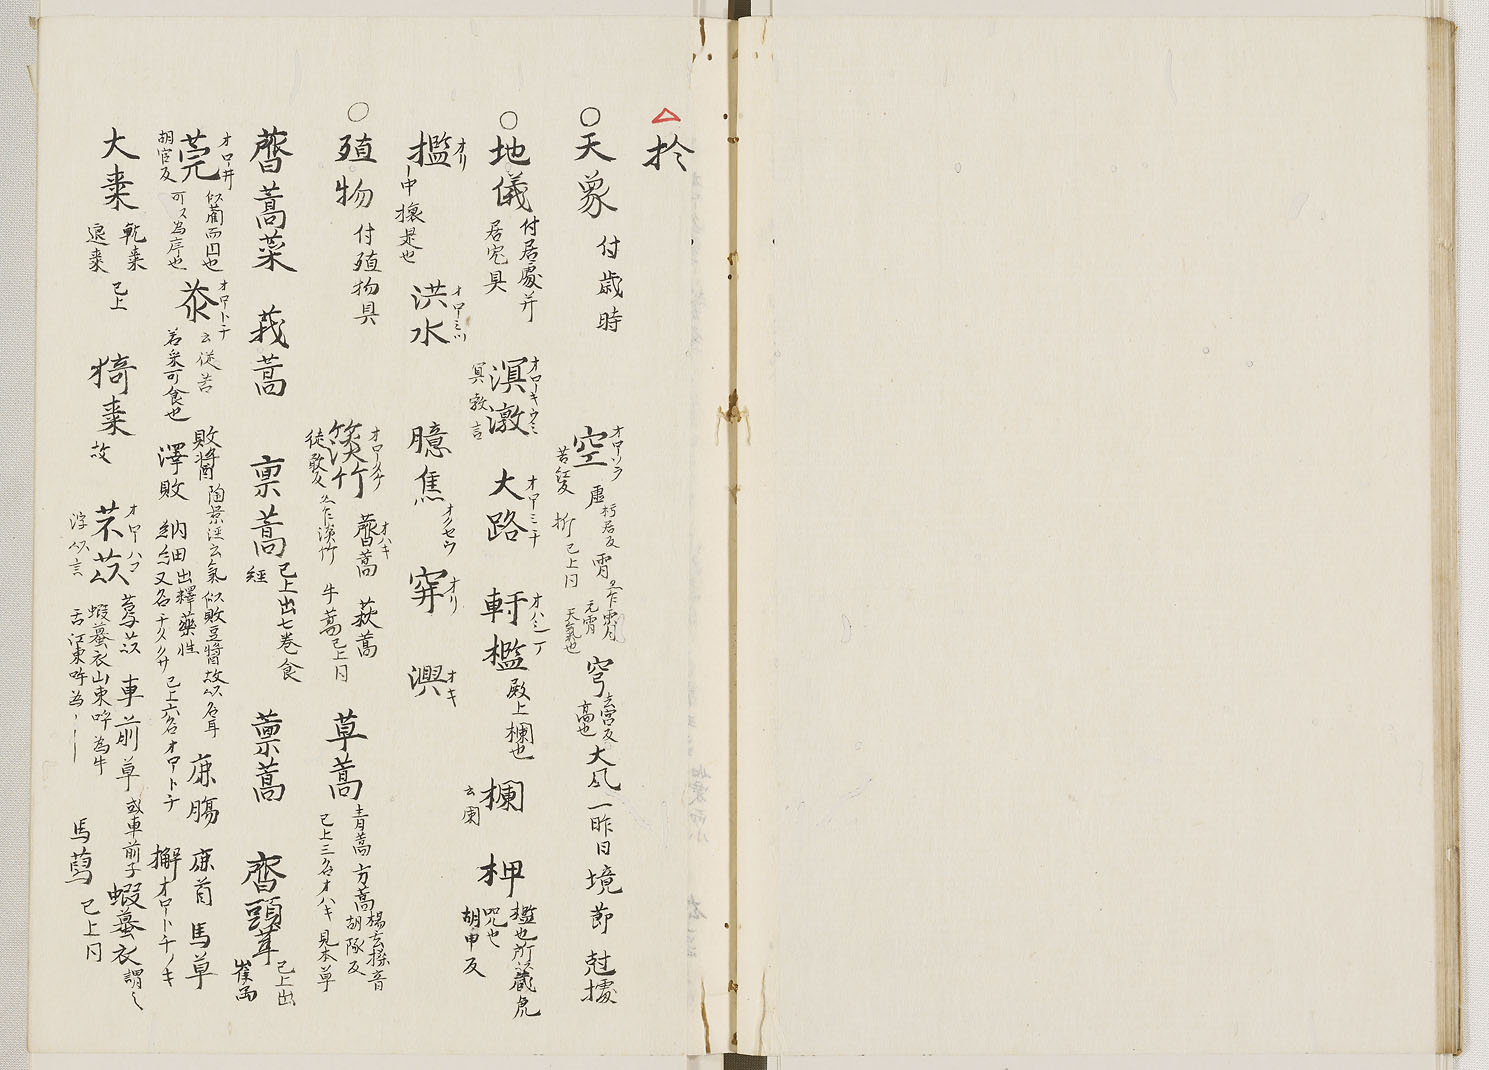 扵
天象 付歳時 空 オホソラ 苦紅反 虚 朽居反 霄 又乍霄 元霄 天氣也 穹 去宮反 高也 大風 一昨日 境節 尅據 已上同
地儀 付居處并居宅具 溟激 オホキウミ 冥 敫言 大路 オホミチ 軒檻 殿上欄也 欄 云闌 柙 檻也所以蔵虎兕也 胡甲反
檻 オリ 中攘是也 洪水 オホミツ 臆焦 オクセウ 穽 オリ 澳 オキ
殖物 付殖物具 淡竹 徒敢反 又乍淡竹 薺蒿 オハキ 莪蒿 牛蒿 已上同 草蒿 青蒿 方蒿 楊玄操音 胡隊反 已上三名オハキ 見本草
薺蒿菜 莪蒿 稟蒿 已上出七巻食経 藁蒿 齊頭茸 已上出崔禹
莞 オホ井 胡官反 似藺而円也 可以為席也 苶 オホトチ 云徒苦 若菜可食也 敗醤 陶景注云氣似敗豆醤故以名耳 澤敗 納細 出釋藥性 又名チククサ 已上六名オホトチ 鹿腸 鹿首 馬草 オホトチノキ
大棗 乾棗 良棗 已上 猗棗 故 芣苡 オホハコ 浮以言 蝦蟇衣山東呼為牛舌江東呼為 車前草 或車前子 蝦蟇衣 謂之 馬蔦 已上同